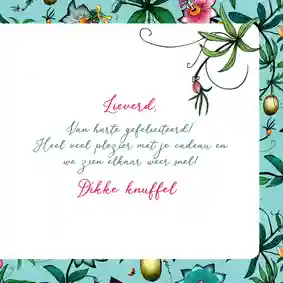 Lieverd,
Van harte gefeliciteerd!
Heel veel plezier met je cadeau en
we zien elkaar weer snel!
Dikke knuffel